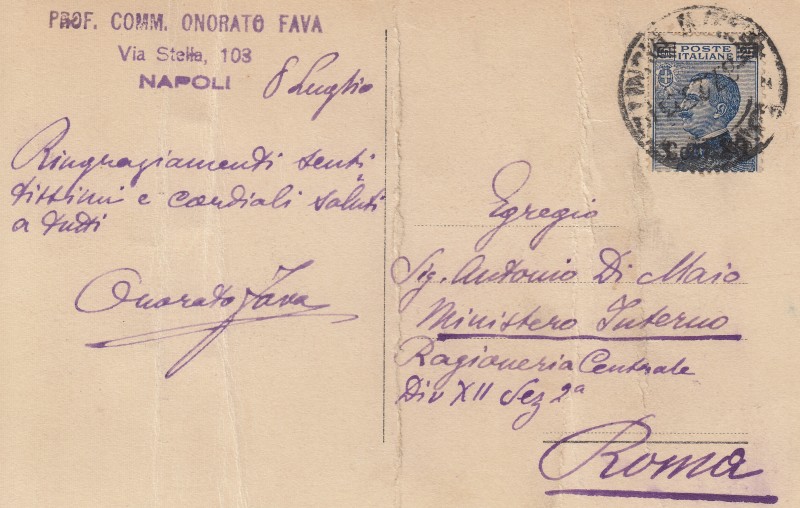 PROF. COMM. ONORATO FAVA
Via Stella, 103
NAPOLI
8 Luglio
Ringraziamenti senti
tissimi e cordiali saluti
a tutti
Onorato Fava
POSTE
ITALIANE
Egregio
Sig. Antonio Di Maio
Ministero Interno
Ragioneria Centrale
Div XII Sez 2ª
Roma